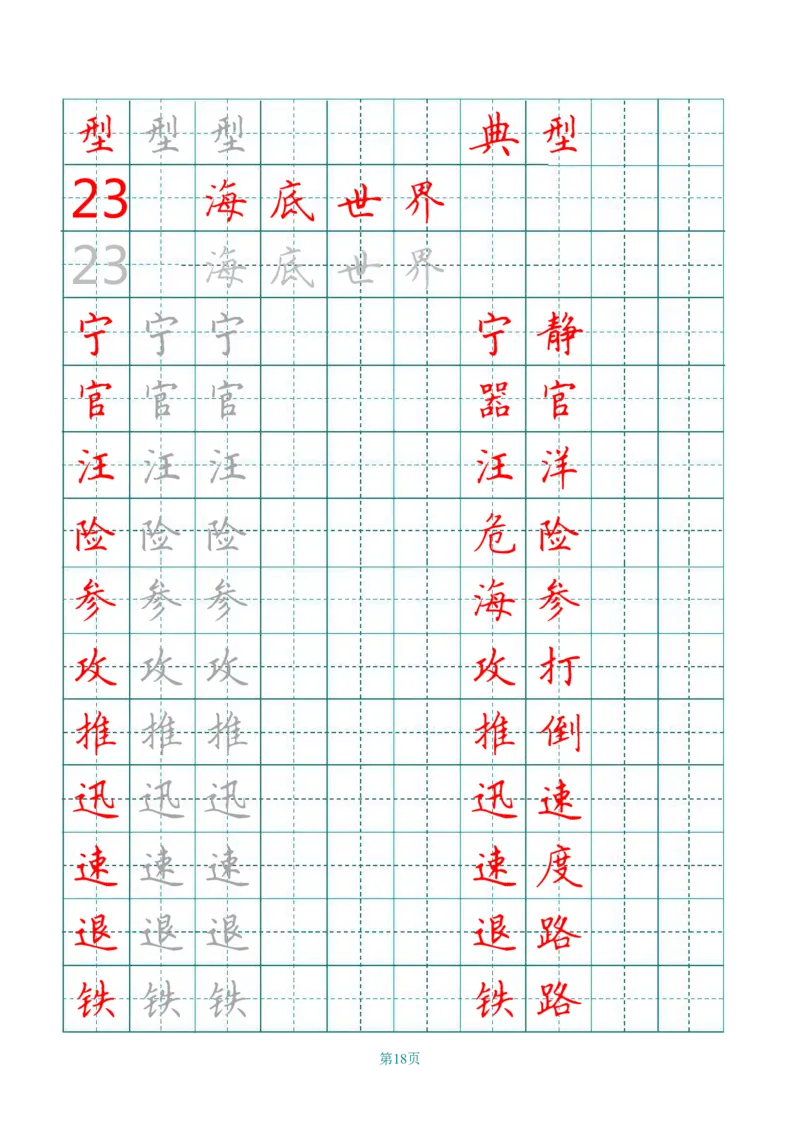 型 型 型 典 型
23 海 底 世 界
23 海 底 世 界
宁 宁 宁 宁 静
官 官 官 器 官
汪 汪 汪 汪 洋
险 险 险 危 险
参 参 参 海 参
攻 攻 攻 攻 打
推 推 推 推 倒
迅 迅 迅 迅 速
速 速 速 速 度
退 退 退 退 路
铁 铁 铁 铁 路
第18页